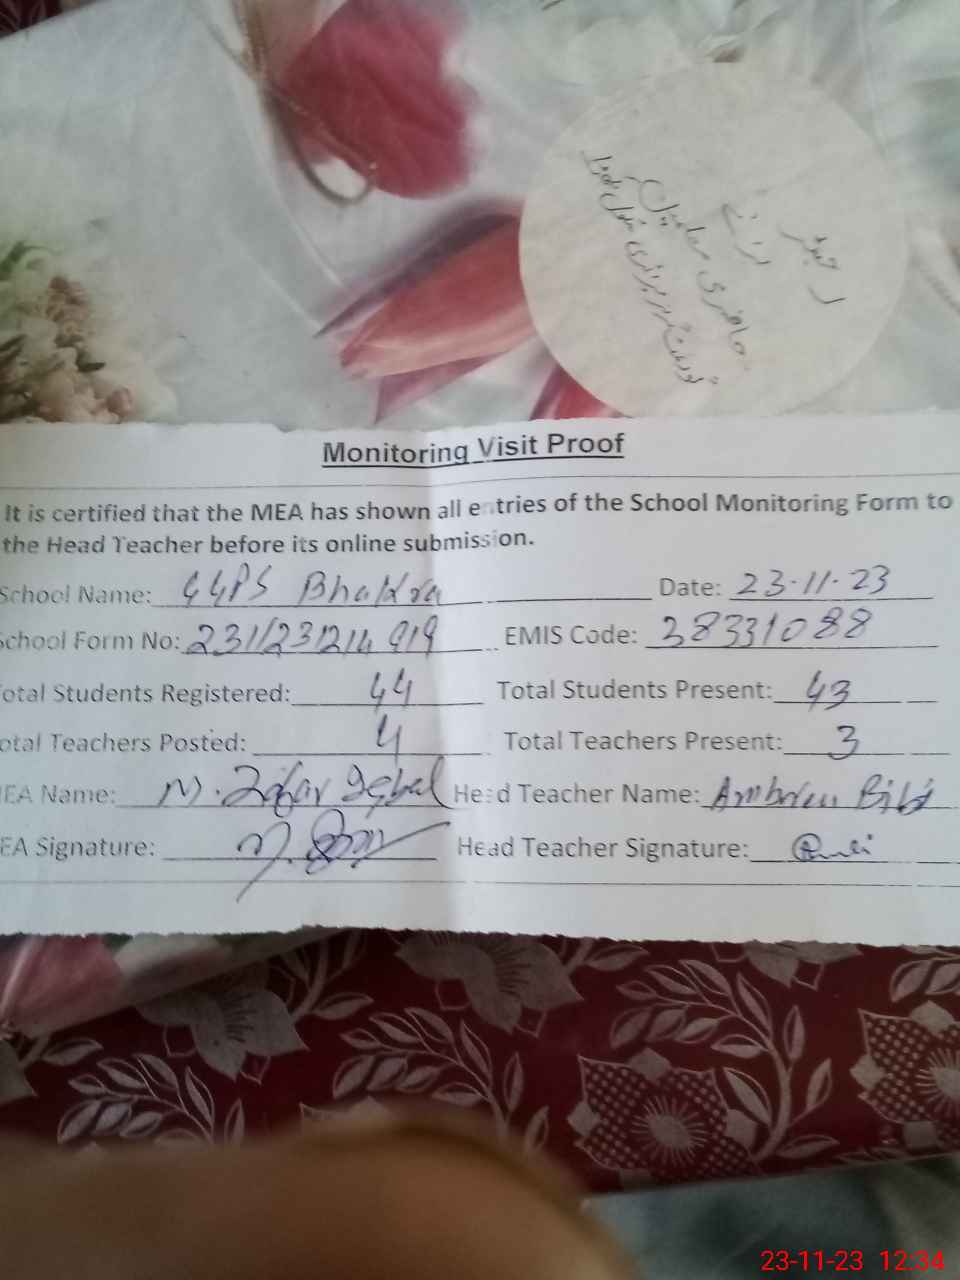 رجسٹر
برائے
حاضری معلمین
گورنمنٹ گرلز پرائمری سکول
Monitoring Visit Proof
It is certified that the MEA has shown all entries of the School Monitoring Form to
the Head Teacher before its online submission.
School Name: GGPS Bhakra Date: 23-11-23
School Form No: 231/231214919 EMIS Code: 38331088
Total Students Registered: 44 Total Students Present: 43
Total Teachers Posted: 4 Total Teachers Present: 3
MEA Name: M. Zafar Iqbal Head Teacher Name: Ambreen Bibi
MEA Signature: Head Teacher Signature:
23-11-23 12:34